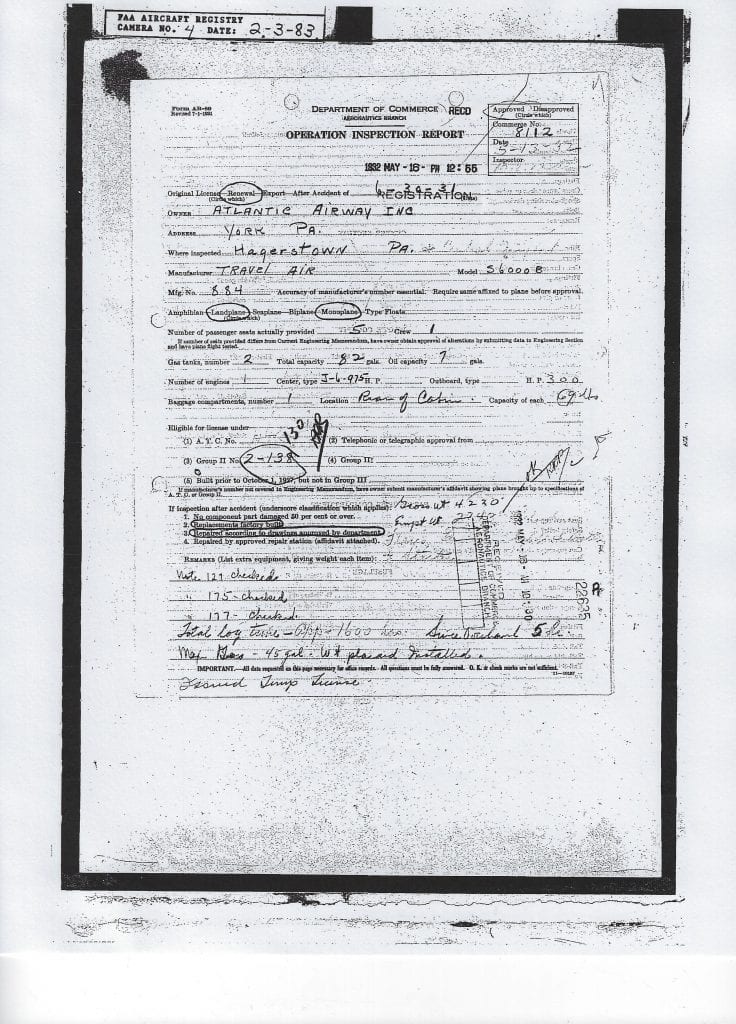 FAA AIRCRAFT REGISTRY
CAMERA NO. 4 DATE: 2-3-83
Form AB-80
Revised 7-1-1931
DEPARTMENT OF COMMERCE
AERONAUTICS BRANCH
RECD
OPERATION INSPECTION REPORT
Approved Disapproved
(Circle which)
Commerce No.
8112
Date
5-13-32
Inspector
1932 MAY-16- PM 12:55
Original License Renewal Export After Accident of 6-30-31
(Circle which)
REGISTRATION
OWNER ATLANTIC AIRWAY INC
ADDRESS YORK PA.
Where inspected Hagerstown PA.
Manufacturer TRAVEL AIR Model S6000B
Mfg. No. 884 Accuracy of manufacturer's number essential. Require same affixed to plane before approval.
Amphibian Landplane Seaplane Biplane Monoplane Type Floats
(Circle which)
Number of passenger seats actually provided 5 Crew 1
If number of seats provided differs from Current Engineering Memorandum, have owner obtain approval of alterations by submitting data to Engineering Section
and have plane flight tested.
Gas tanks, number 2 Total capacity 82 gals. Oil capacity 7 gals.
Number of engines 1 Center, type J-6-975 H. P. Outboard, type H. P. 300
Baggage compartments, number 1 Location Rear of Cabin. Capacity of each
Eligible for license under
130
(1) A. T. C. No. (2) Telephonic or telegraphic approval from
(3) Group II No. 2-138 (4) Group III
(5) Built prior to October 1, 1927, but not in Group III
If manufacturer's number not covered in Engineering Memorandum, have owner submit manufacturer's affidavit showing plane brought up to specifications of
A. T. C. or Group II.
If inspection after accident (underscore classification which applies): Gross wt 4230
1. No component part damaged 50 per cent or over.
2. Replacements factory built Empt Wt
3. Repaired according to drawings approved by department
4. Repaired by approved repair station (affidavit attached).
RECEIVED
DEPARTMENT OF COMMERCE
AERONAUTICS BRANCH
REMARKS (List extra equipment, giving weight each item):
Note 127 checked
" 175 - checked
" 177 - checked
22635
Total log time - App - 1600 hrs. Since overhaul 5
Max Gas - 45 gal - Wt placard Installed.
IMPORTANT.—All data requested on this page necessary for office records. All questions must be fully answered. O. K. or check marks are not sufficient.
Issued Temp License.